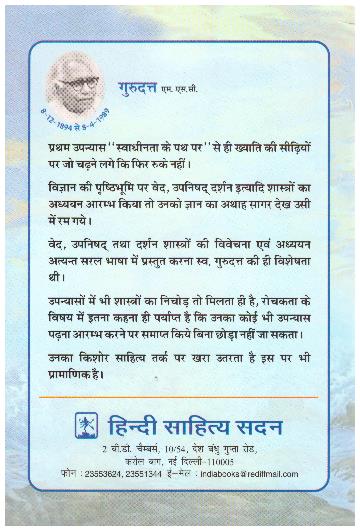 गुरुदत्त एम. एस.सी.
8-12-1894 से 8-4-1989
प्रथम उपन्यास ''स्वाधीनता के पथ पर'' से ही ख्याति की सीढ़ियों
पर जो चढ़ने लगे कि फिर रुके नहीं।
विज्ञान की पृष्ठभूमि पर वेद, उपनिषद् दर्शन इत्यादि शास्त्रों का
अध्ययन आरम्भ किया तो उनको ज्ञान का अथाह सागर देख उसी
में रम गये।
वेद, उपनिषद् तथा दर्शन शास्त्रों की विवेचना एवं अध्ययन
अत्यन्त सरल भाषा में प्रस्तुत करना स्व. गुरुदत्त की ही विशेषता
थी।
उपन्यासों में भी शास्त्रों का निचोड़ तो मिलता ही है, रोचकता के
विषय में इतना कहना ही पर्याप्त है कि उनका कोई भी उपन्यास
पढ़ना आरम्भ करने पर समाप्त किये बिना छोड़ा नहीं जा सकता।
उनका किशोर साहित्य तर्क पर खरा उतरता है इस पर भी
प्रामाणिक है।
हिन्दी साहित्य सदन
2 बी.डी. चैम्बर्स, 10/54, देश बंधु गुप्ता रोड,
करोल बाग, नई दिल्ली-110005
फोन : 23553624, 23551344 ई-मेल : indiabooks@rediffmail.com